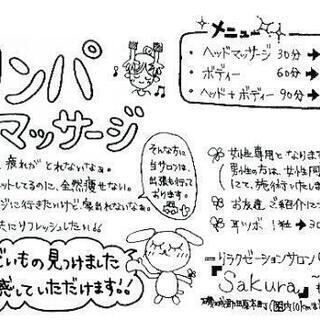 リンパ
マッサージ
メニュー
・ヘッドマッサージ 30分→
・ボディー 60分→
・ヘッド＋ボディー 90分→
疲れがとれないなぁ。
ットしてるのに、全然痩せない。
ジに行きたいけど、
にリフレッシュしたい!!
そんな方に
当サロンは、
出張も行って
おります。
女性専用となります
男性の方は、女性同
にて、施行いたしま
お友達ご紹介に
耳ツボ 1粒→30
いもの見つけました
感していただけます!!
リラクゼーションサロン
『Sakura